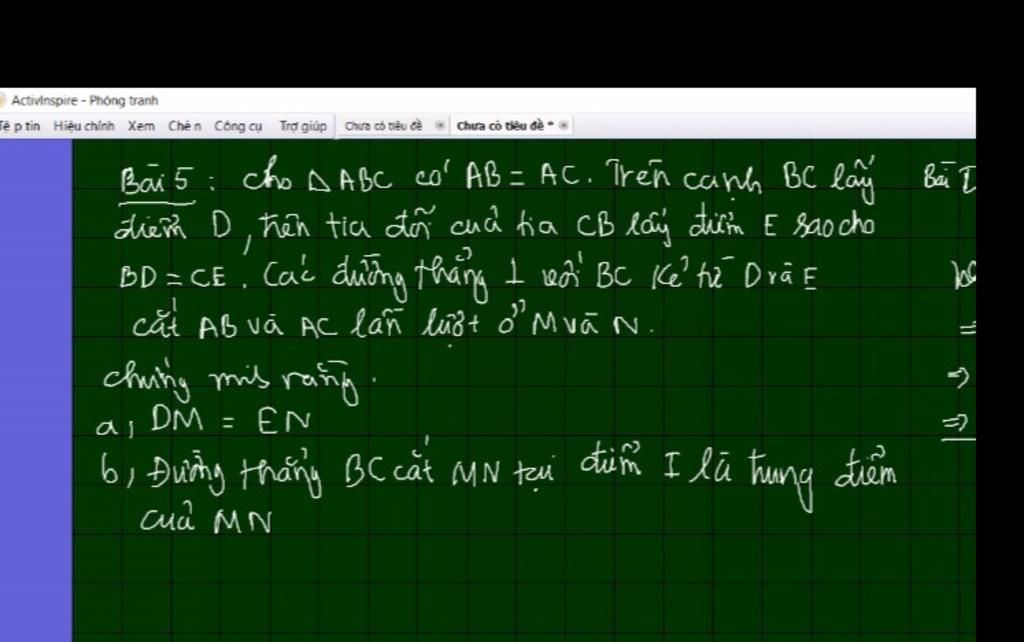 ActivInspire - Phòng tranh
Tệp tin Hiệu chỉnh Xem Chèn Công cụ Trợ giúp Chưa có tiêu đề Chưa có tiêu đề *
Bài 5 : cho △ABC có AB = AC. Trên cạnh BC lấy
điểm D, trên tia đối của tia CB lấy điểm E sao cho
BD = CE. Các đường thẳng ⊥ với BC kẻ từ D và E
cắt AB và AC lần lượt ở M và N.
chứng mis rằng.
a, DM = EN
b, Đường thẳng BC cắt MN tại điểm I là trung điểm
của MN
Bài
=
=>
=>